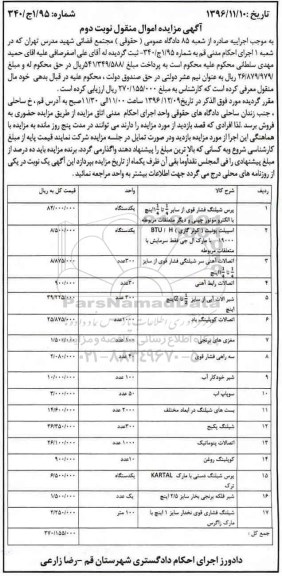 تاریخ: ۱۳۹۶/۱۱/۱۰
شماره: ۹۵/ج۱/۳۴۰
آگهی مزایده اموال منقول نوبت دوم
به موجب اجراییه صادره از شعبه ۸۵ دادگاه عمومی (حقوقی) مجتمع قضائی شهید مدرس تهران که در
شعبه ۱ اجرای احکام مدنی قم به شماره ۹۵/ج۱/۳۴۰- ثبت گردیده له آقای علی اصغرصافی علیه اقای حمید
مهدی سلطانی محکوم علیه محکوم است به پرداخت مبلغ ۵۴۱/۳۴۹/۵۸۸ریال در حق محکوم له و مبلغ
۲۶/۸۷۹/۹۷۹ ریال به عنوان نیم عشر دولتی در حق صندوق دولت ، محکوم علیه در قبال بدهی خود مال
منقول معرفی کرده است که کارشناس به مبلغ ۲۷۰/۱۵۵/۰۰۰ ریال ارزیابی کرده است.
مقرر گردیده مورد فوق الذکر در تاریخ۱۳۹۶/۱۲/۰۹ از ساعت ۱۱/۰۰الی ۱۱/۳۰صبح به آدرس قم ، خ ساحلی
، جنب زندان ساحلی دادگاه های حقوقی واحد اجرای احکام مدنی اتاق مزایده از طریق مزایده حضوری به
فروش برسد .لذا افرادی که قصد بازدید از مورد مزایده را دارند می توانند در مدت پنج روز مانده به مزایده با
هماهنگی این اجرا از مورد مزایده بازدید ودر صورت تمایل در جلسه مزایده شرکت نمایند قیمت پایه از مبلغ
کارشناسی شروع وبه کسانی که بالا ترین مبلغ را پیشنهاد دهند واگذارمی گردد. برنده مزایده باید ده درصد از
مبلغ پیشنهادی را فی المجلس نقداوما بقی آن ظرف یکماه از تاریخ مزایده بپردازد این آگهی یک نوبت در یکی
از روزنامه های محلی درج می گردد جهت اطلاعات بیشتر به واحد اجرا مراجعه نمائید.
ردیف شرح کالا تعداد قیمت کل به ریال
۱ پرس شیلنگ فشار قوی از سایز اینچ با الکتروموتور چینی و دیگر متعلقات مربوطه یکدستگاه ۸۲/۰۰۰/۰۰۰
۲ اسپیلت یونیت (کولر گازی) BTU / H ۱۹۰۰۰ با مارک ال جی فقط سرمایش با متعلقات مربوطه یکدستگاه ۸/۵۰۰/۰۰۰
۳ اتصالات آهنی سر شیلنگی فشار قوی از سایز اینچ ۳۰۰عدد ۸/۸۷۵/۰۰۰
۴ اتصالات رابط آهنی ۲۰عدد ۹۰۰/۰۰۰
۵ شیر الات آبی از سایز اینچ عدد
۶ اتصالات کوپلینگ باد عدد ۲۵/۸۷۵/۰۰۰
۷ مغزی های برنجی عدد ۱/۵۰۰/۰۰۰
۸ سه راهی فشار قوی عدد ۲/۰۸۰/۰۰۰
۹ شیر خودکار آب ۱۰۰ عدد ۱۰/۰۰۰/۰۰۰
۱۰ سوپاپ آب ۵۰ عدد ۳/۰۰۰/۰۰۰
۱۱ بست های شیلنگ در ابعاد مختلف ۲۰۰۰ عدد ۱۴/۶۰۰/۰۰۰
۱۲ شیلنگ پکیج ۳۰۰عدد ۲۶/۲۵۰/۰۰۰
۱۳ اتصالات پنوماتیک ۱۰۰۰ عدد ۲۶/۱۰۰/۰۰۰
۱۴ کوپلینگ روغن ۱۰عدد ۹۰۰/۰۰۰
۱۵ پرس شیلنگ دستی با مارک KARTAL ترک یکدستگاه ۶/۵۰۰/۰۰۰
۱۶ شیر فلکه برنجی بخار سایز ۲/۵ اینچ یک عدد ۱/۵۰۰/۰۰۰
۱۷ شیلنگ فشاری قوی نخدار سایز ۱ اینچ با مارک زاگرس ۱۰۰ متر ۴/۲۵۰/۰۰۰
جمع کل: ۲۷۰/۱۵۵/۰۰۰
دادورز اجرای احکام دادگستری شهرستان قم -رضا زارعی
ParsNamadData
۰۲۱-۸۸۳۴۹۶۷۰-۵